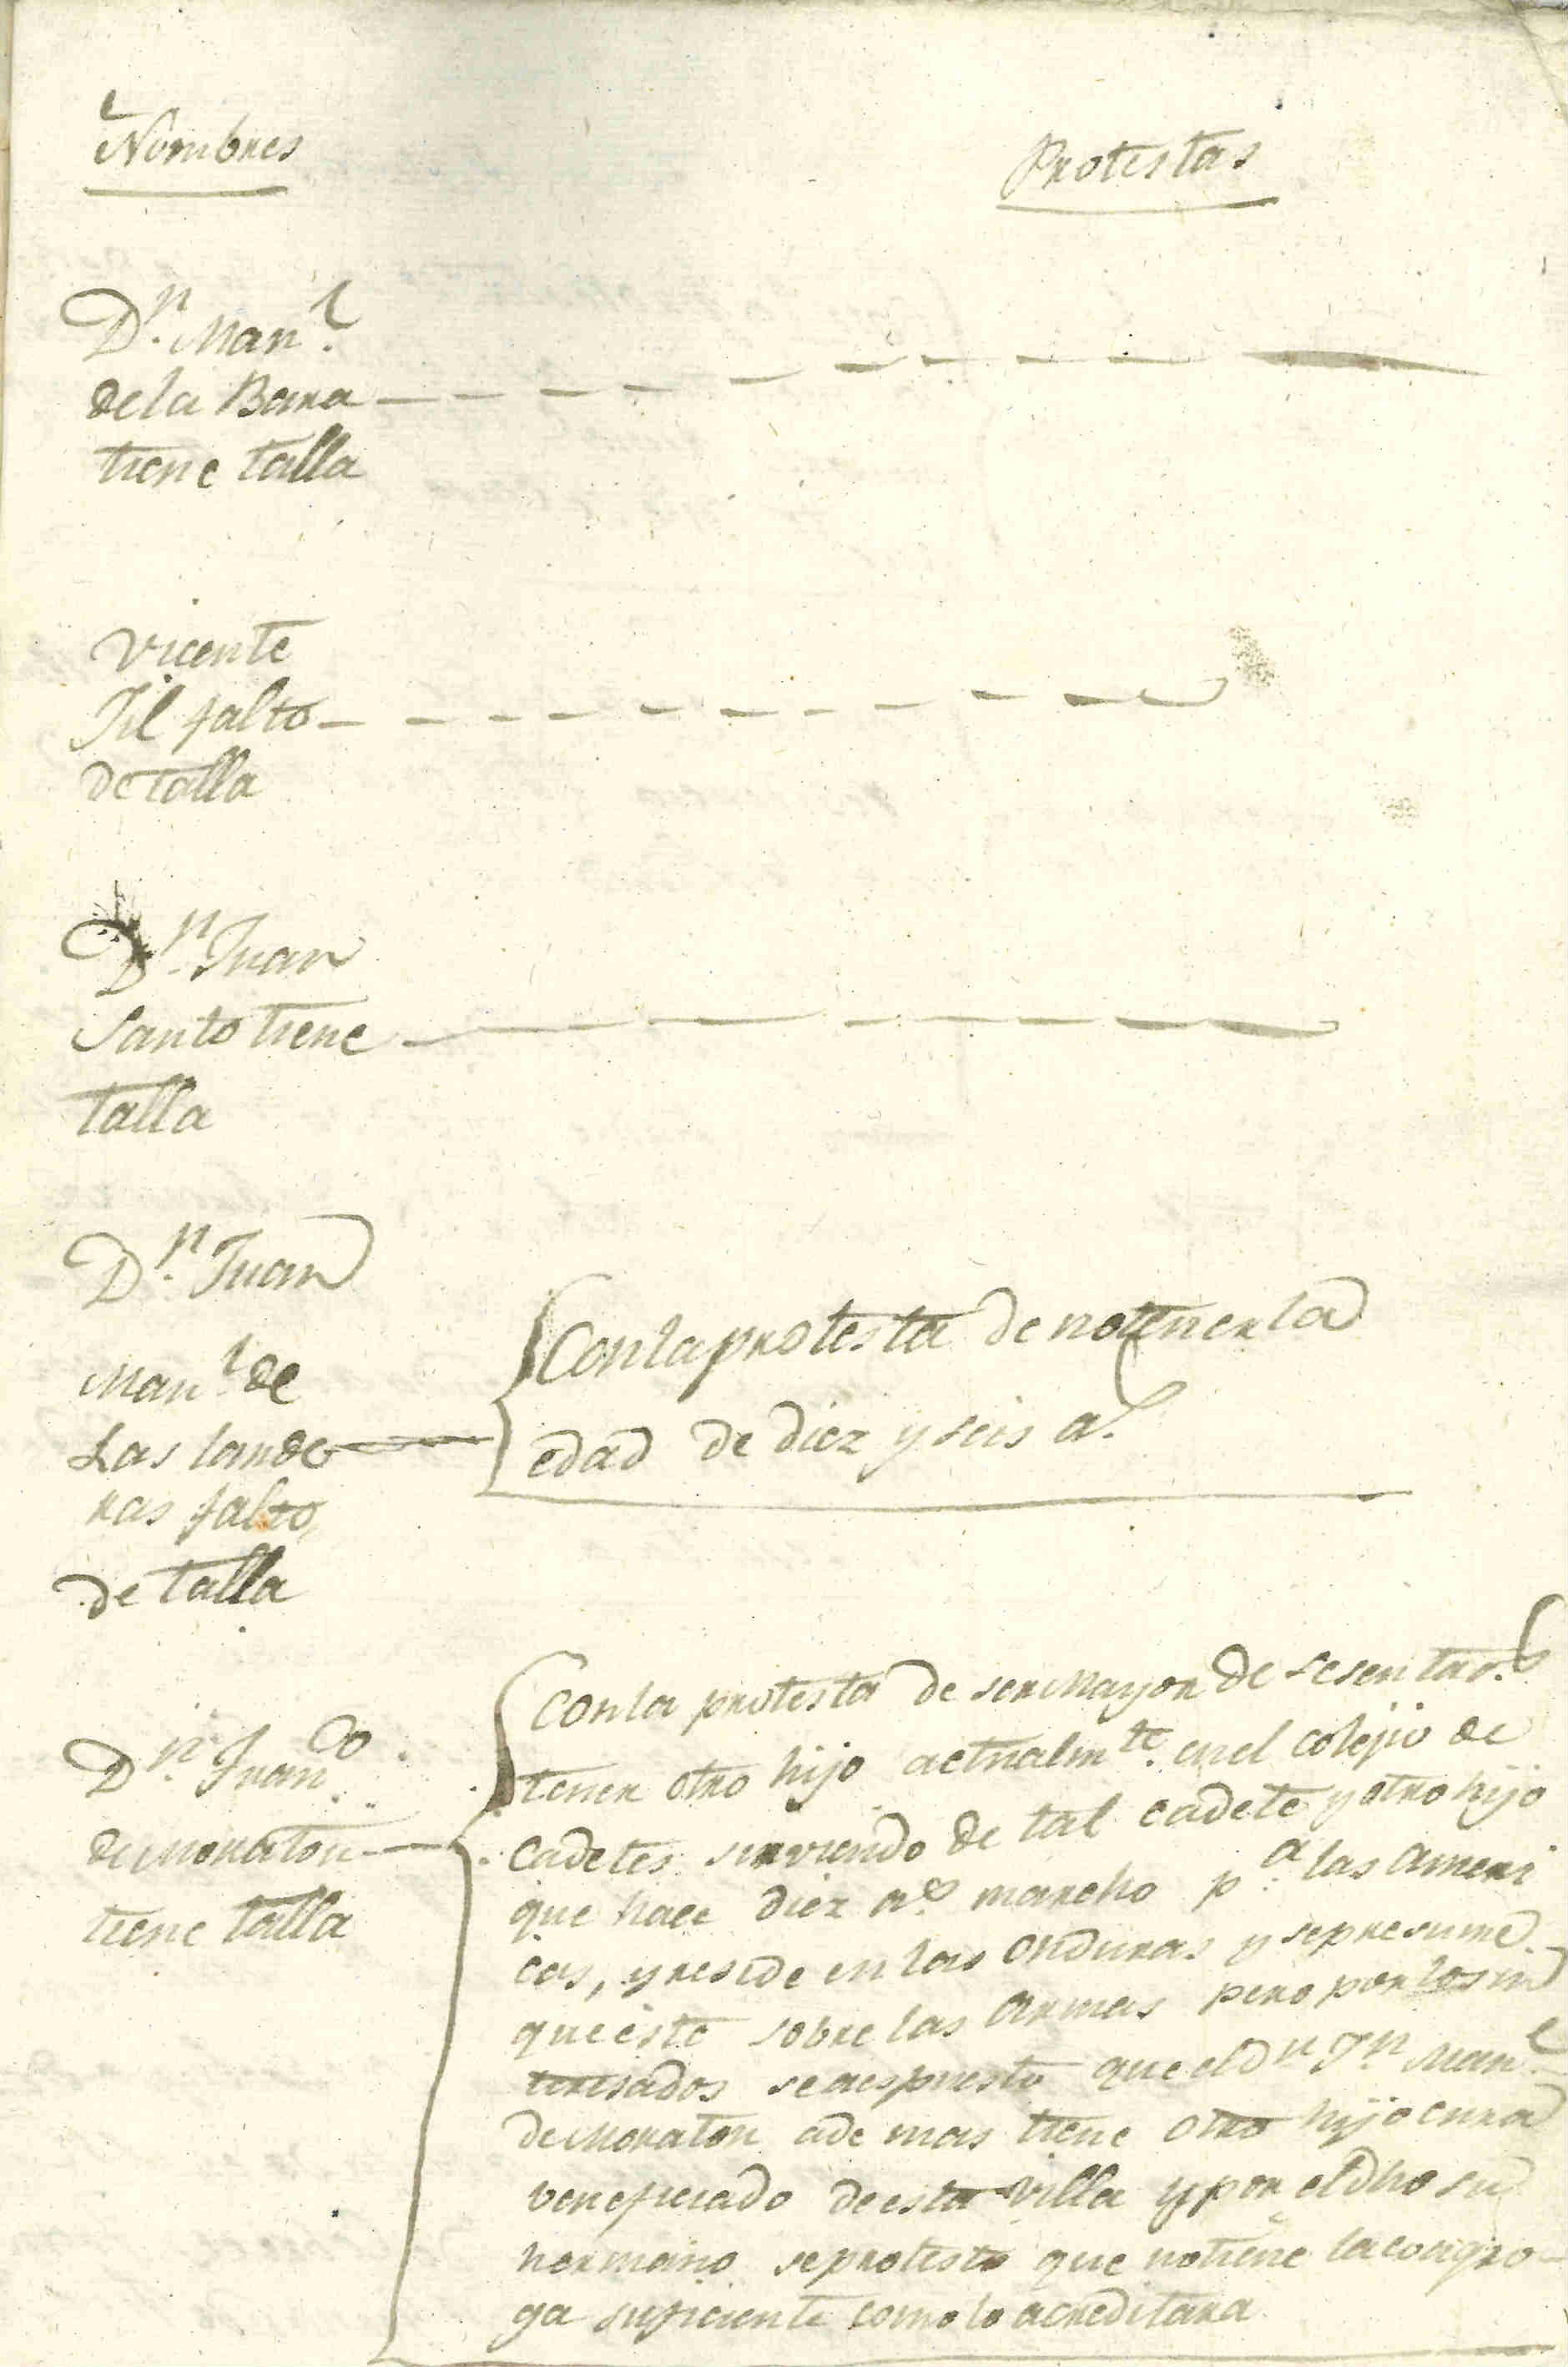 Nombres
Protestas
Dn. Manl.
dela Bara
tiene talla
Vicente
Jil falto
de talla
Dn. Juan
Santo tiene
talla
Dn. Juan
Manl. de
Las lande
ras falto
de talla
Con la protesta de no tener la
edad de diez y seis as.
Dn. Juan
de Moraton
tiene talla
Con la protesta de ser Mayor de sesenta as.
tener otro hijo actualmte. en el colejio de
Cadetes sirviendo de tal cadete y otro hijo
que hace diez as. marcho pa. las Ameri
cas, y reside en las Onduras y se presume
que esté sobre las Armas pero por los in
teresados se a espuesto que el Dn. Jn. Manl.
de Moraton ade mas tiene otro hijo cura
veneficiado de esta Villa y por el dho su
hermano se protesto que no tiene la congro
ga suficiente como lo acreditara